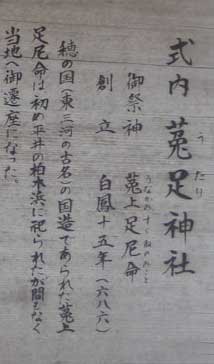 式内 菟足神社
うたり
御祭神 菟上足尼命
うなかみすくねのみこと
創立 白鳳十五年(六八六)
穂の国(東三河の古名)の国造であられた菟上
足尼命は初め平井の柏木浜に祀られたが間もなく
当地へ御遷座になった。